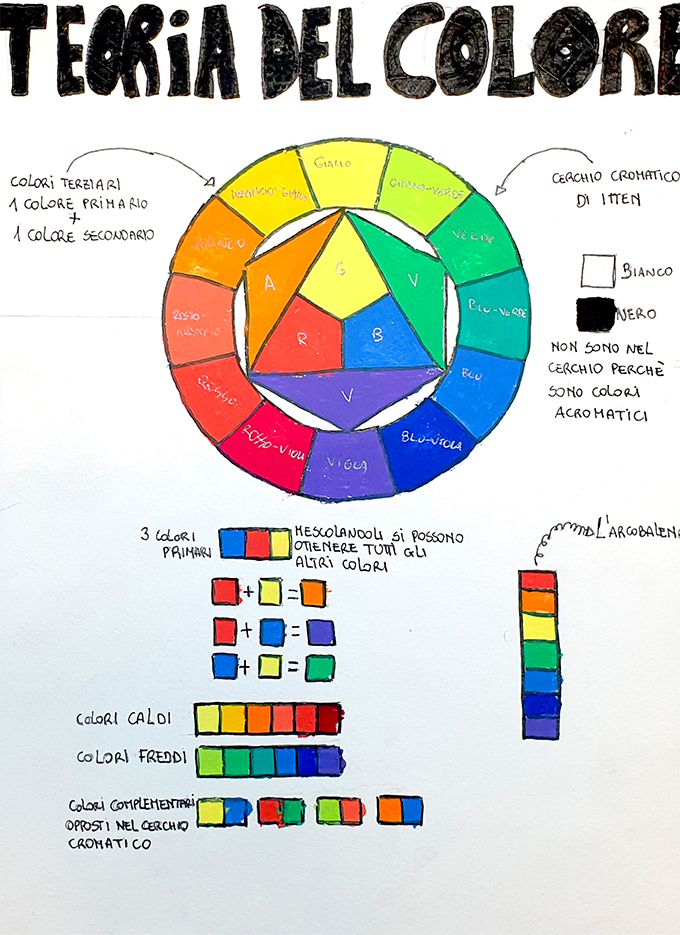 TEORIA DEL COLORE
COLORI TERZIARI
1 COLORE PRIMARIO
+
1 COLORE SECONDARIO
CERCHIO CROMATICO
DI ITTEN
GIALLO
GIALLO-VERDE
VERDE
BLU-VERDE
BLU
BLU-VIOLA
VIOLA
ROSSO-VIOLA
ROSSO
ROSSO-
ARANCIO
ARANCIO
ARANCIO-GIALLO
A
G
V
R
B
V
BIANCO
NERO
NON SONO NEL
CERCHIO PERCHÈ
SONO COLORI
ACROMATICI
3 COLORI
PRIMARI
MESCOLANDOLI SI POSSONO
OTTENERE TUTTI GLI
ALTRI COLORI
+ =
+ =
+ =
L'ARCOBALENO
COLORI CALDI
COLORI FREDDI
COLORI COMPLEMENTARI
OPPOSTI NEL CERCHIO
CROMATICO